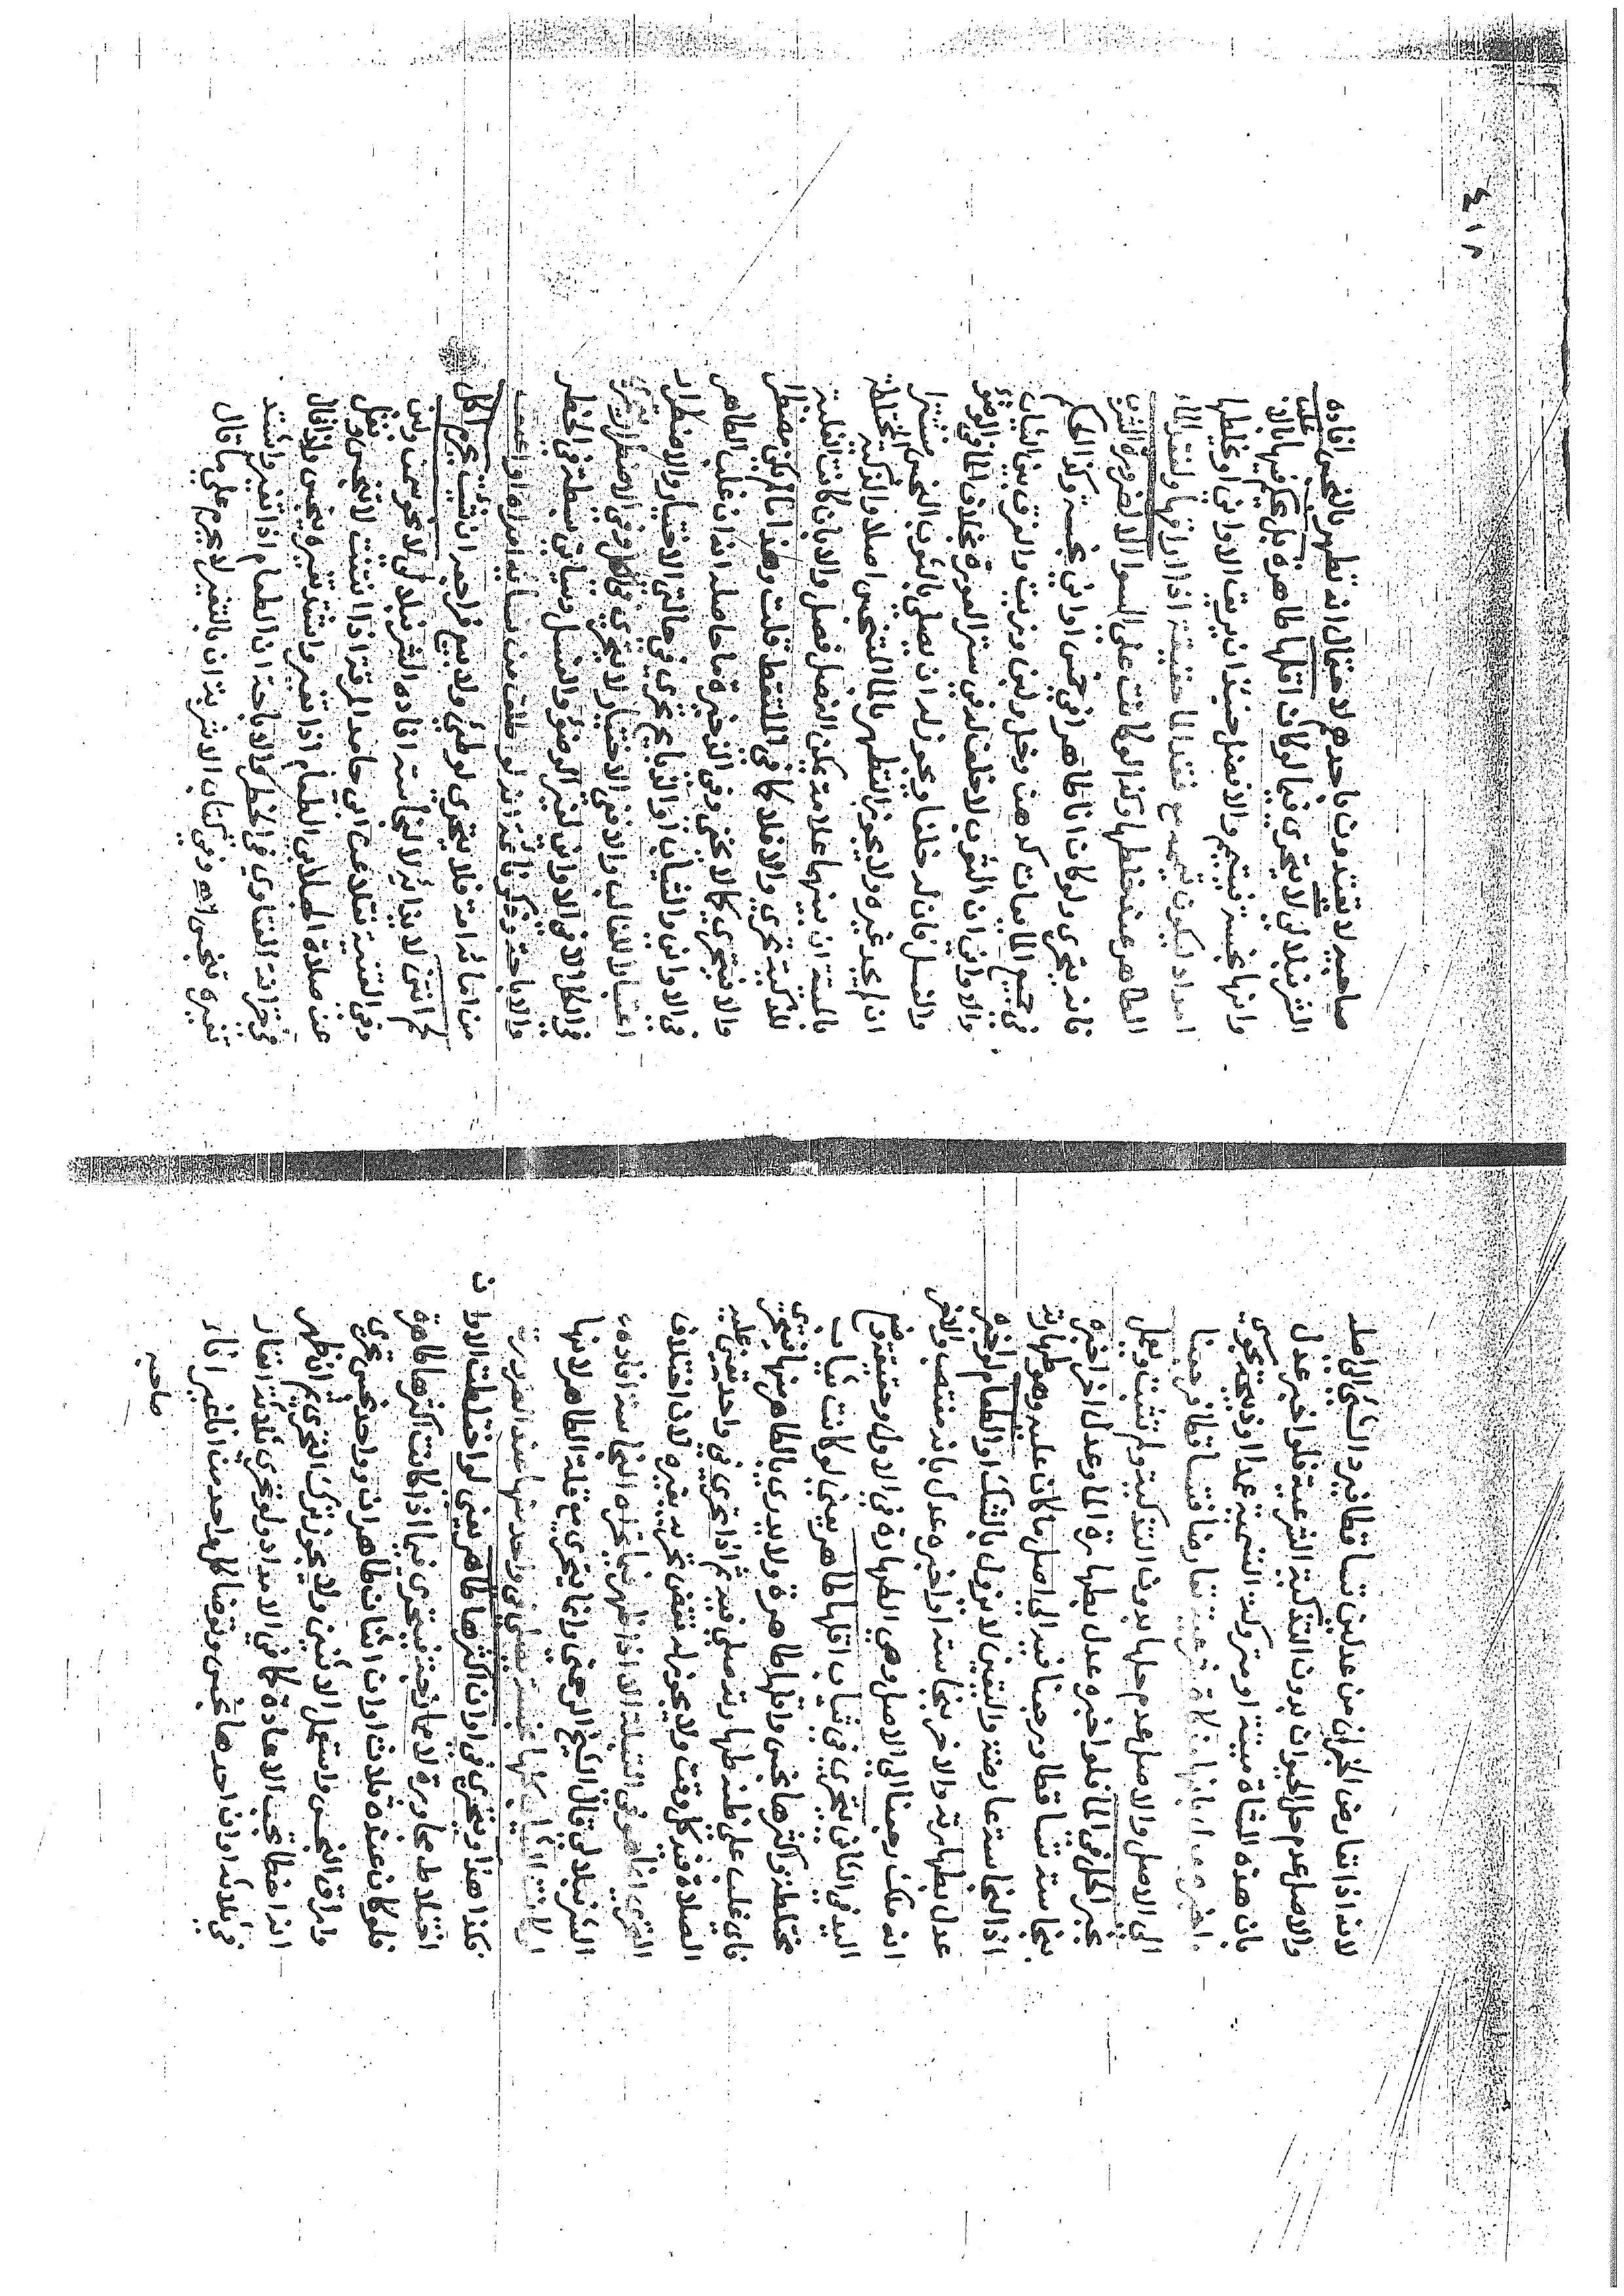 لانه اذا تعارض الخبران من عدلين تساقطا فيرد الشيء الى اصله
والاصل عدم حل الحيوان بدون التذكية الشرعية فلو اخبر عدل
بان هذه الشاة ميتة او متروكة التسمية عمدا او ذبيحة مجوسي
بانها ذكاة شرعية تعارضا فتساقطا فرجعنا
الى الاصل والاصل عدم حلها بدون التذكية ولم تثبت ويعمل
بخبر الحل في الماء فلو اخبره عدل بطهارة الماء وعدل اخر اخبره
بنجاسته تساقطا ورجعنا فيه الى اصل ما كان عليه وهو طهارته
اذ النجاسة عارضة واليقين لا يزول بالشك او الطعام لو اخبره
عدل بطهارته والاخر بنجاسته او اخبره عدل بانه مغتصب والاخر
انه ملك رجعنا الى الاصل وهي الطهارة في الاول وحقيقة وضع
اليد في الثاني يتحرى في ثياب اقلها طاهر يعني لو كانت ثياب
مختلطة واكثرها نجس واقلها طاهرة ولا يدري بالطاهر منها فتحرى
فاي غلب على ظنه طهارته صلى فيه ثم اذا تحرى في واحد تعين عليه
الصلاة فيه كل وقت ولا يجوز له نقض تحريه بغيره لان اختلاف
التحري انما هو في القبلة الا اذا ظهر فيما تحراه النجاسة افاده
الشرنبلالي قال الشيخ الرحمتي وانما يتحرى مع قلة الطاهر لانها
لو كانت الثياب كلها نجسة يصلي في واحد منها عند الضرورة
فكذا هذا ويتحرى في اوان اكثرها طاهر يعني لو اختلطت الاوان
اختلاط مجاورة لا ممازجة فيتحرى فيها اذا كانت اكثرها طاهرة
فلو كان عنده ثلاث اوان اثنان طاهران وواحد نجس تحرى
واراق النجس واستعمل الاثنين ولا يجوز ترك التحري ثم ان ظهر
انه اخطا تجب الاعادة كما في الامداد ولو تحرى ثلاثة انفار
في ثلاثة اوان احدها نجس وتوضا كل واحد منهم
صاحبه
صاحبه لا تعتد وان باحدهم لاحتمال انه تطهر بالنجس افاده
الشرنبلالي لا يتحرى فيما لو كان اقلها طاهرة بل يحكم فيها بان
وانها نجسة فيتيمم والافضل حينئذ ان يريق الاواني او يخلطها
امداد ليكون تيممه مع فقد الماء حقيقة اذا اراقها
الطاهر عند خلطها وكذا لو كانت على السوا الا لضرورة الشرب
فانه يتحرى ولو كان اناء طاهرا في خمس اواني نجسة وكذا الحكم
في جميع المائعات كدهن وخل ولبن وزيت والفرق بين الثياب
والاواني ان الثوب لا خلف له في ستر العورة بخلاف الماء في الوضو
والغسل فان له خلفا ويجوز له ان يصلي بالثوب النجس مستترا
ان لم يجد غيره ولا يجوز التطهر بالماء المتنجس اصلا والذكية المختلطة
بالميتة ان بينهما علامة يمكن الفصل فصل والا بان كانت الغلبة
للذكية تحرى والا فلا كما في الملتقط قلت وهذا ما لم يكن مضطرا
والا فيتحرى كما لا يخفى وفي الذخيرة ما حاصله انه ان غلب الطاهر
في الاواني والثياب او الذبايح تحرى في حالتي الاختيار والاضطرار
اعتبارا للغالب والا ففي الاختيار لا يتحرى في الكل وفي الاضطرار يتحرى
في الكل الا في الاواني لغير الوضوء والغسل وسياتي بسطه في الحظر
والاباحة وتذكر قاعدة انه لو طلق من نسائه امراة او اعتق
من امائه امة فلا يتحرى لوطئ ولا بيع فراجعه ان شئت يحرم اكل
لحم انتن لايذائه لا لنجاسته افاده الشرنبلالي لا نحو سمن ولبن
وفي القنية نقلا عن ابي حامد المرقة اذا انتنت لا تنجس ونقل
عن صلاة الجلابي الطعام اذا تغير واشتد تغيره ينجس وكذا قال
في خزانة الفتاوي في الحظر والاباحة ان الطعام اذا تغير واشتد
تغيره نجس اه وفي كتاب الاشربة ان بالتغير لا يحرم على ما قال